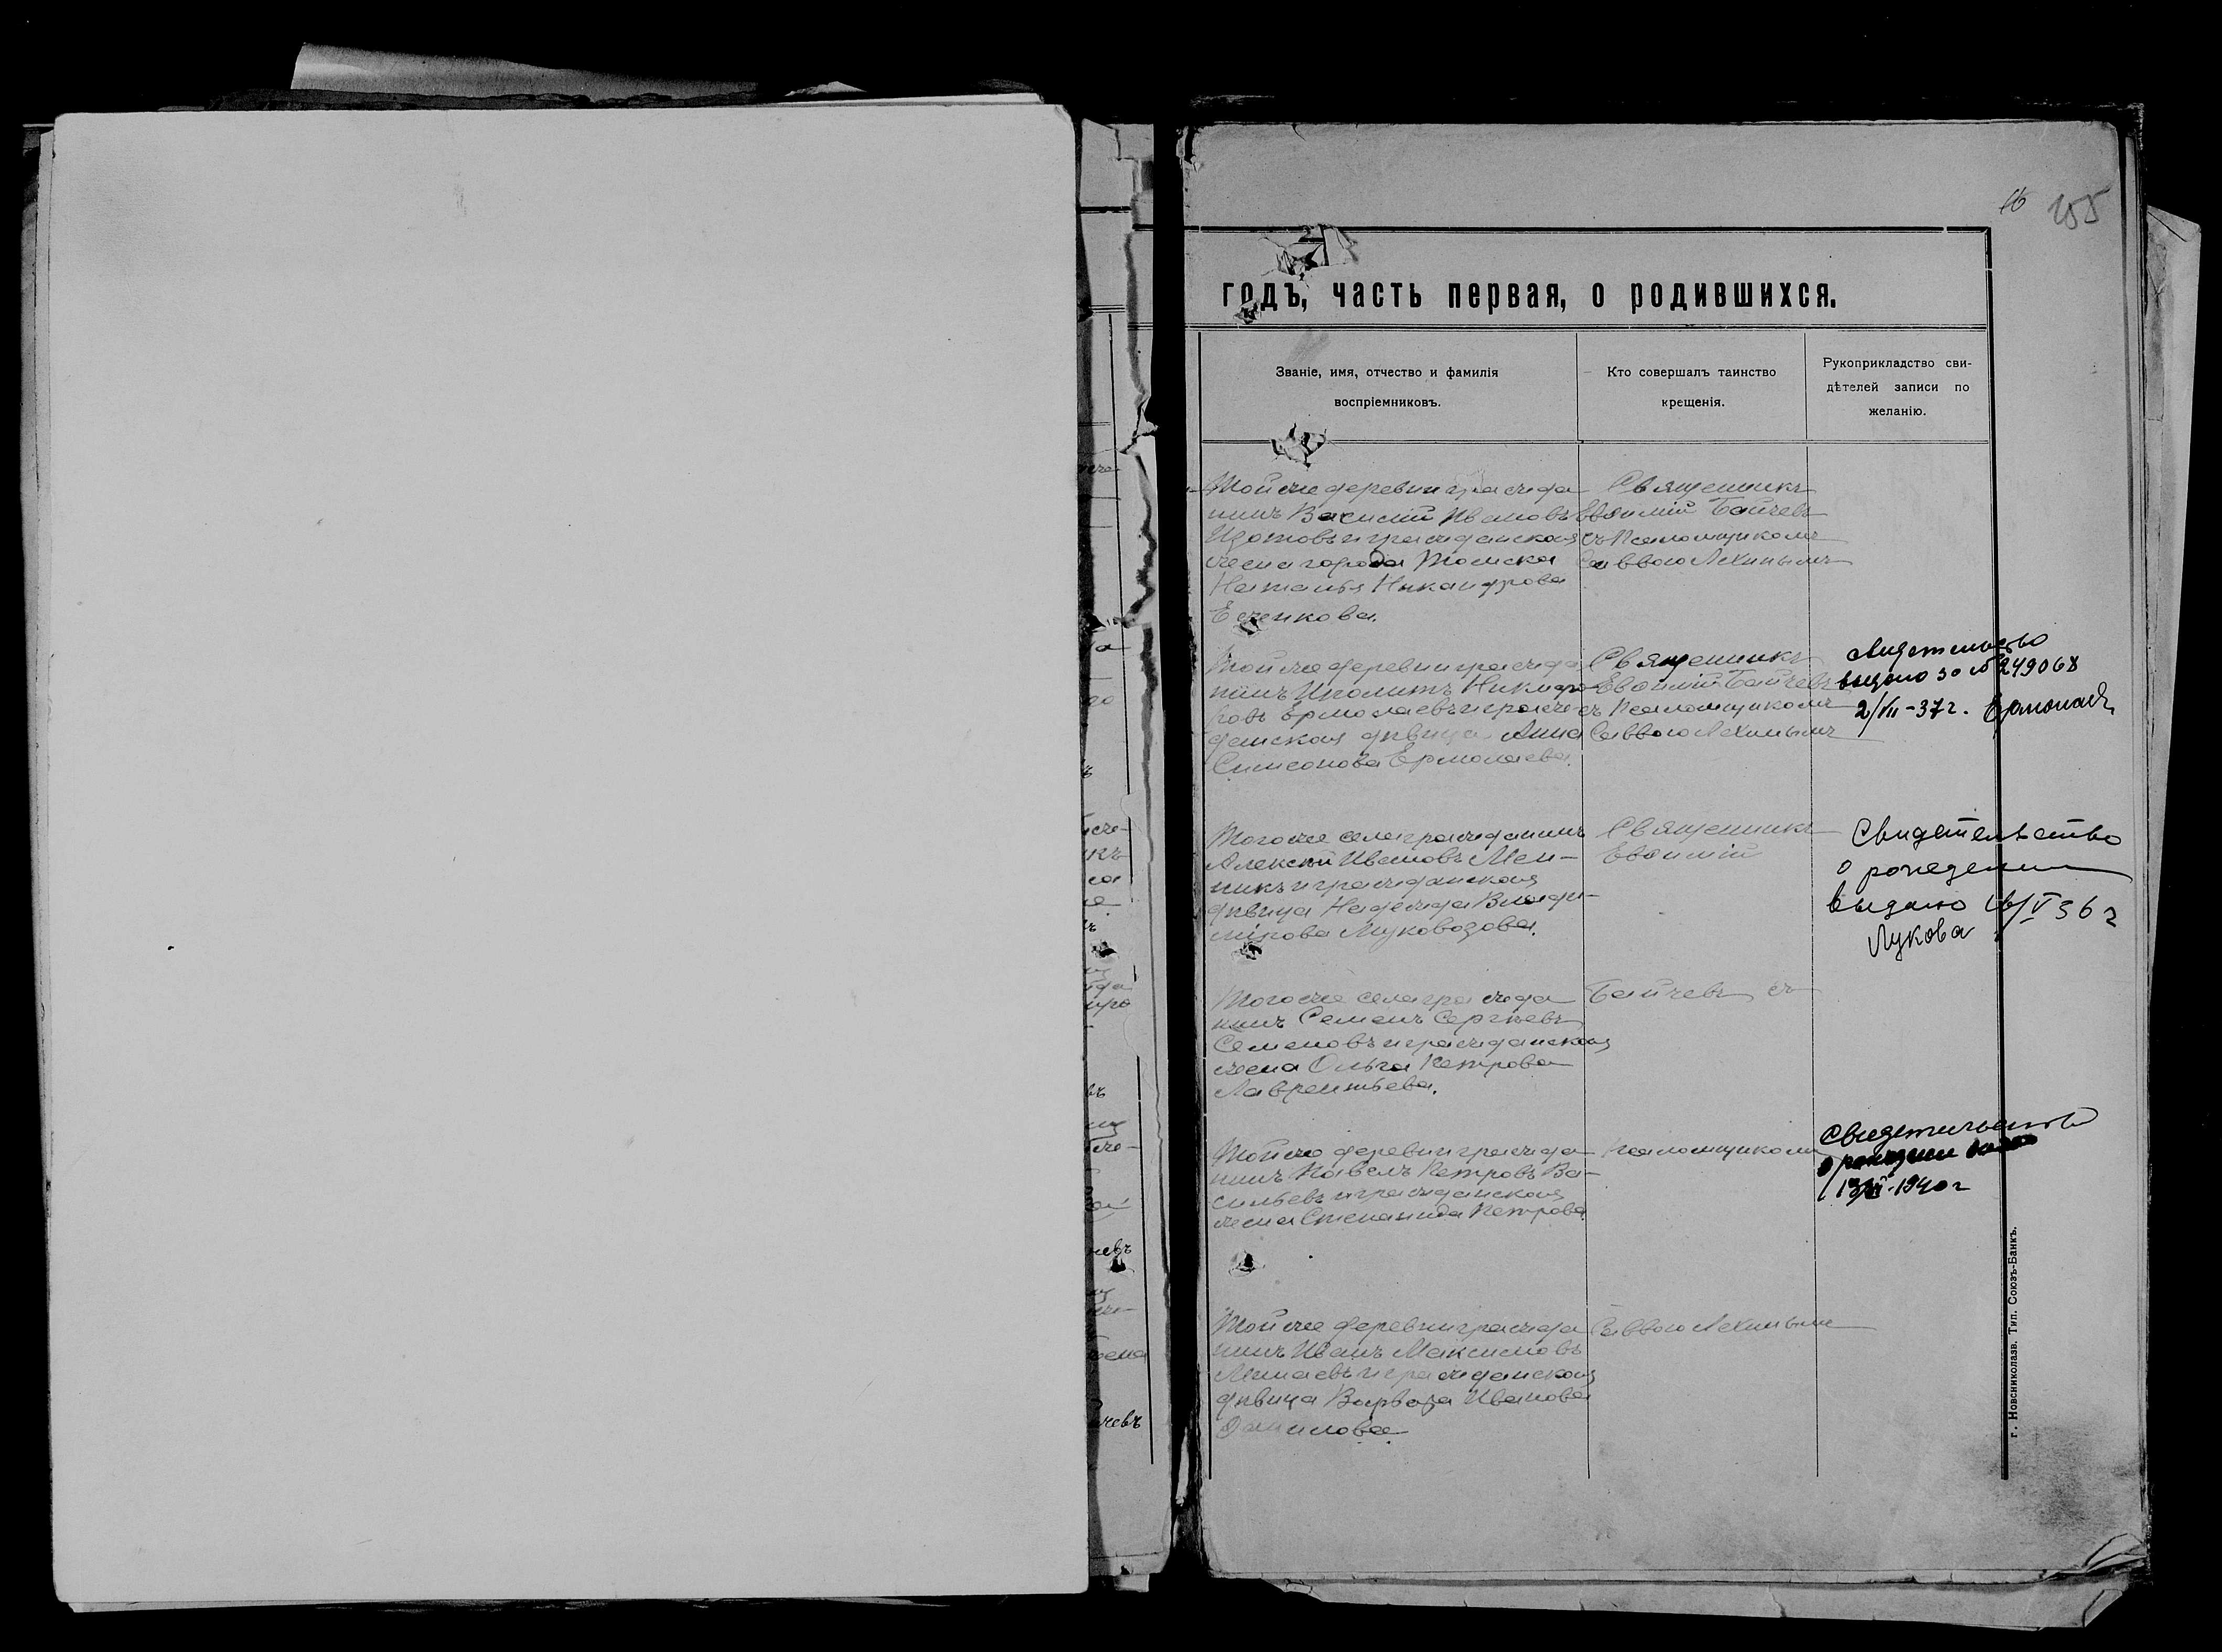 16 255
годъ, часть первая, о родившихся.
Званіе, имя, отчество и фамилія
воспріемниковъ.
Кто совершалъ таинство
крещенія.
Рукоприкладство сви-
дѣтелей записи по
желанію.
Той же деревни гражда
нинъ Василій Ивановъ
Изотовъ и гражданская
жена города Томска
Наталья Никандрова
Священникъ
Евѳимій Байчевъ
съ Псаломщикомъ
Саввою Лехинымъ
Той же деревни гражда
нинъ Иполитъ Никифо
ровъ Ермолаевъ и граж
данская дѣвица Анна
Симеонова Ермолаева.
Священникъ
Евѳимій Байчевъ
съ Псаломщикомъ
Саввою Лехинымъ
Свидетельство
выдано за № 249068
2/VII-37г.
Того же села гражданинъ
Алексѣй Ивановъ Мель-
никъ и гражданская
дѣвица Надежда Влади-
мірова Муковозова.
Священникъ
Евѳимій
Свидетельство
о рождении
выдано 16/V 36 г
Лукова
Того же села гражда
нинъ Семенъ Сергѣевъ
Семеновъ и гражданская
жена Ольга Петрова
Лаврентьева.
Байчевъ съ
Той же деревни гражда
нинъ Павелъ Петровъ Ва-
сильевъ и гражданская
жена Степанида Петрова
Псаломщикомъ
Свидетельство
о рождении
1940 г
Той же деревни гражда
нинъ Иванъ Максимовъ
Минаевъ и гражданская
дѣвица Варвара Иванова
Данилова
Саввою Лехинымъ
г. Новониколаев. Тип. Союзъ-Банкъ.